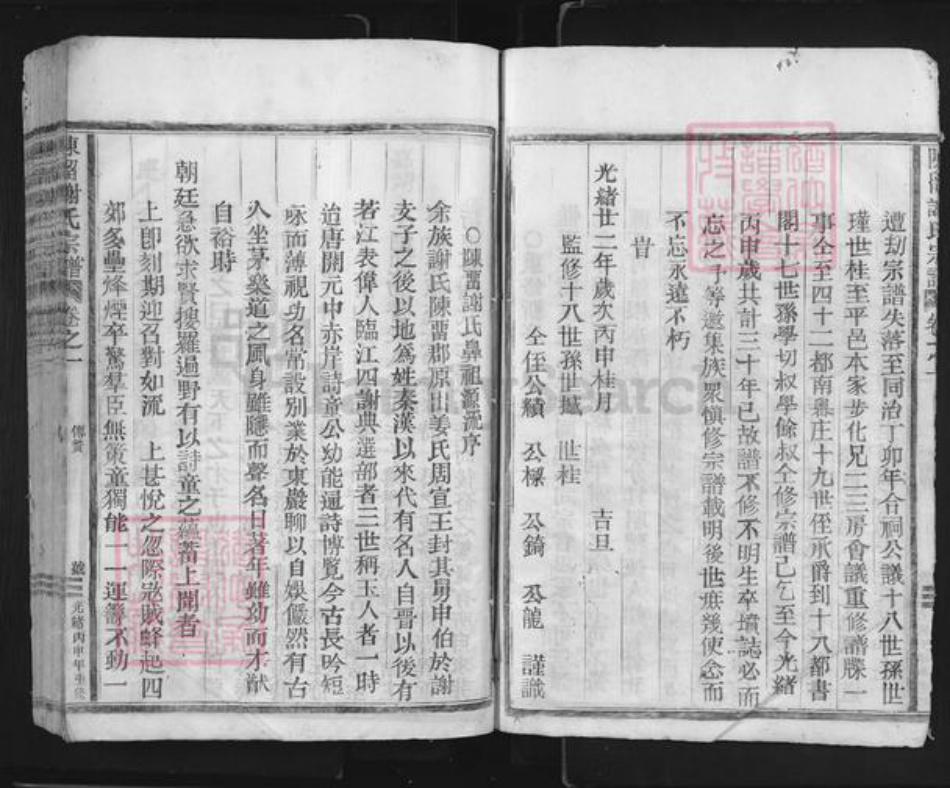 遭刼宗譜失落至同治丁卯年合祠公議十八世孫世
瑾世桂至平邑本家步化兄一二三房會議重修譜牒一
事仝至四十二都南興庄十九世侄承爵到十八都書
閣十七世孫學切叔學餘叔仝修宗譜己乞至今光緒
丙申歲共計三十年已故譜不修不明生卒墳誌必而
忘之予等邀集族衆慎修宗譜載明後世庶幾使念而
不忘永遠不朽
旹
光緒廿二年歲次丙申桂月 吉旦
監修十八世孫世瑊 世桂
仝侄公績 公樑 公錡 公龍 謹識
陳留謝氏宗譜 卷之一
○陳畱謝氏鼻祖源流序
余族謝氏陳畱郡原出姜氏周宣王封其舅申伯於謝
支子之後以地為姓秦漢以來代有名人自晋以後有
若江表偉人臨江四謝典選部者三世稱玉人者一時
迨唐開元中赤岸詩童公幼能通詩博覽今古長吟短
咏而薄視功名常設別業於東巖聊以自娛儼然有古
人坐茅樂道之風身雖隱而聲名日著年雖幼而才猷
自裕時
朝廷急欲求賢搜羅過野有以詩童之蘊蓄上聞者
上即刻期迎召對如流 上甚悅之忽際寇賊蜂起四
郊多壘烽煙卒驚羣臣無策童獨能一一運籌不動一
陳畱謝氏宗譜 卷之一 傳贊 號 光緒丙申年重修